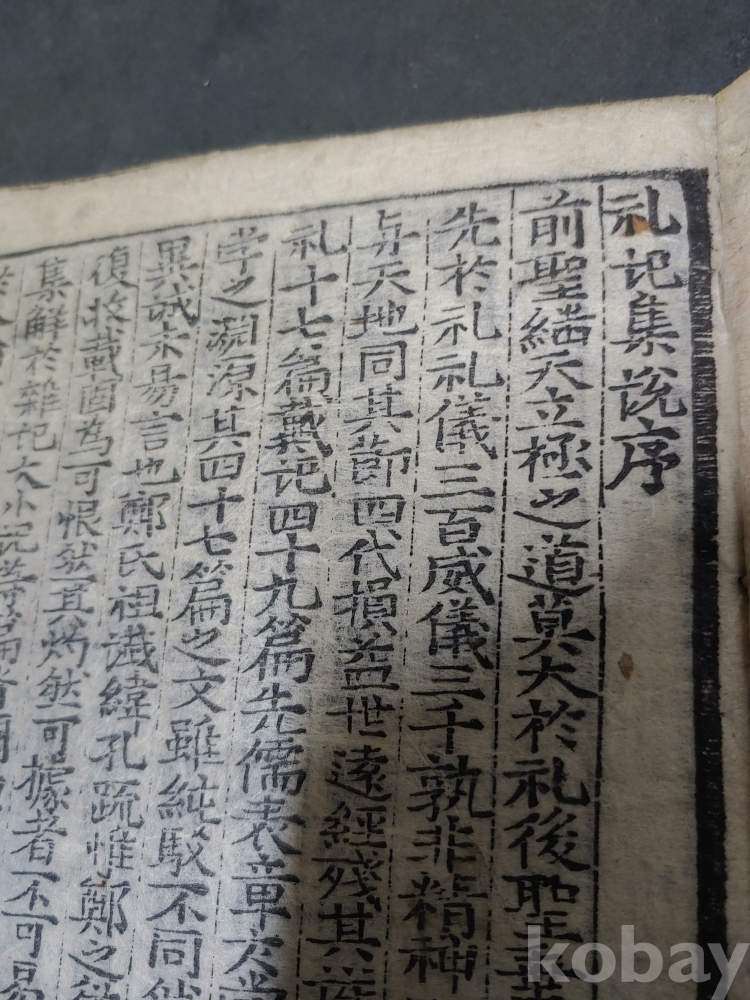 礼記集說序
前聖繼天立極之道莫大於礼後聖
先於礼礼儀三百威儀三千孰非精神
与天地同其節四代損益世遠經殘其
礼十七篇戴記四十九篇先儒表章
學之淵源其四十七篇之文雖純駁不同然
異誠未易言也鄭氏祖讖緯孔疏惟鄭之
復收載固為可恨然其灼然可據者不可易
集解於雜記大小記等篇皆
kobay